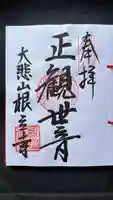 奉拝
正観世音
大悲山根立寺